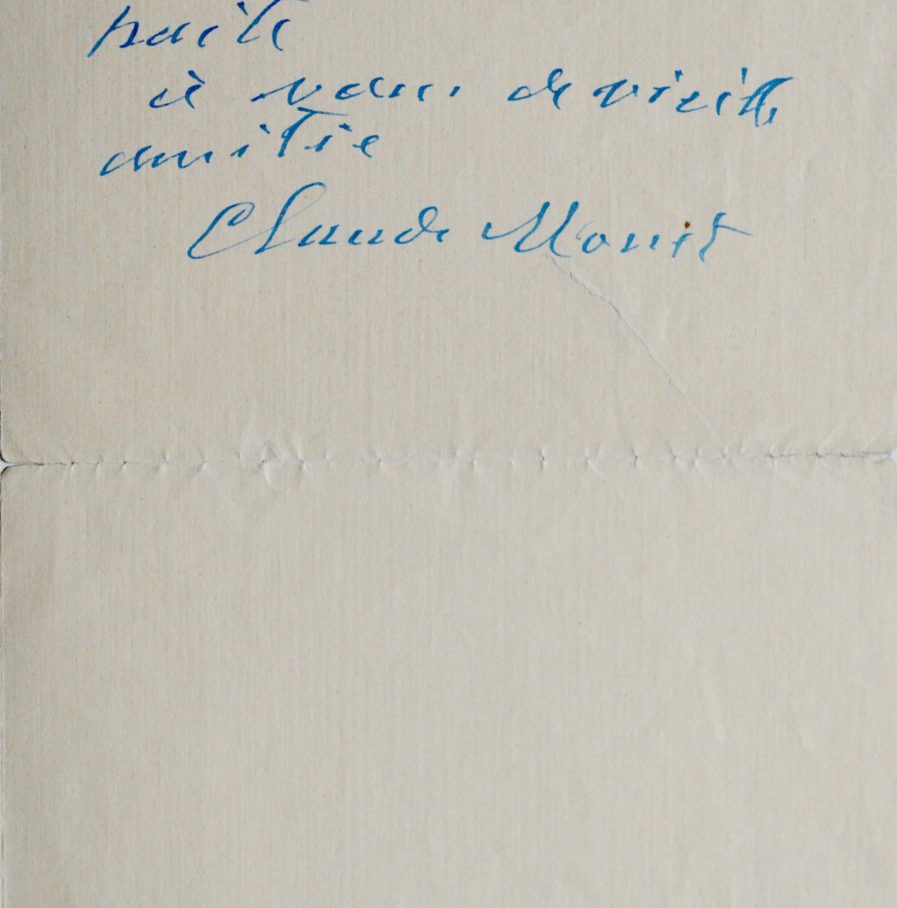 à vous de vieille
amitié
Claude Monet